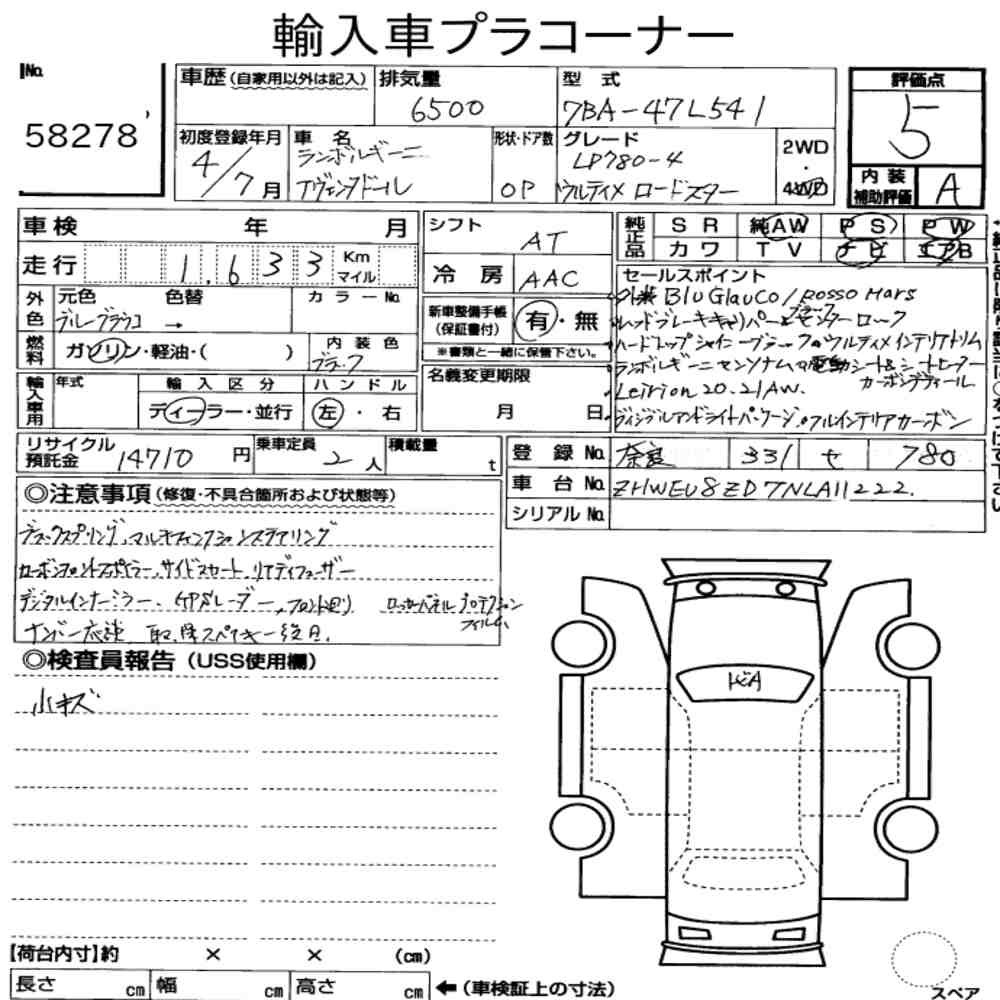 輸入車プラコーナー
No.
58278
車歴(自家用以外は記入)
排気量
6500
型 式
7BA-47L541
評価点
5
初度登録年月
4/7月
車 名
ランボルギーニ
アヴェンタドール
形状・ドア数
OP
グレード
LP780-4
ウルティメ ロードスター
2WD
・
4WD
内 装
補助評価
A
車検 年 月
走行 1.633 Km
マイル
シフト
AT
冷 房
AAC
純正品
SR 純AW PS PW
カワ TV ナビ エアB
外色
元色 色替
ブルーグラウコ →
カラーNo.
燃料
ガソリン・軽油・( )
内 装 色
ブラック
新車整備手帳
(保証書付)
有・無
※書類と一緒に保管下さい。
セールスポイント
外装 Blu Glauco / Rosso Mars
レッドブレーキキャリパー ブラックセンターロック
ハードトップシャイニーブラック ウルティメインテリアトリム
ランボルギーニセンソナム 電動シート&シートヒーター
カーボンディフィール
Leirion 20.21AW.
ヴィジブルアンドライトパッケージ・フルインテリアカーボン
輸入車用
年式
輸 入 区 分
ディーラー・並行
ハ ン ド ル
左・右
名義変更期限
月 日
リサイクル
預託金
14710 円
乗車定員
2 人
積載量
t
登 録 No. 奈良 331 せ 780
車 台 No. ZHWEU8ZD7NLA11222.
シリアル No.
◎注意事項(修復・不具合箇所および状態等)
マルチファンクションステアリング
カーボンフロントスポイラー、サイドスカート、リアディフューザー
デジタルインナーミラー、GPSレーダー、フロント廻り ロッカーパネルプロテクション
フィルム
ナンバー応談 取、障スペアキー後日.
◎検査員報告(USS使用欄)
小キズ
ドビA
【荷台内寸】約 × × (cm)
長さ cm 幅 cm 高さ cm ←(車検証上の寸法)
スペア